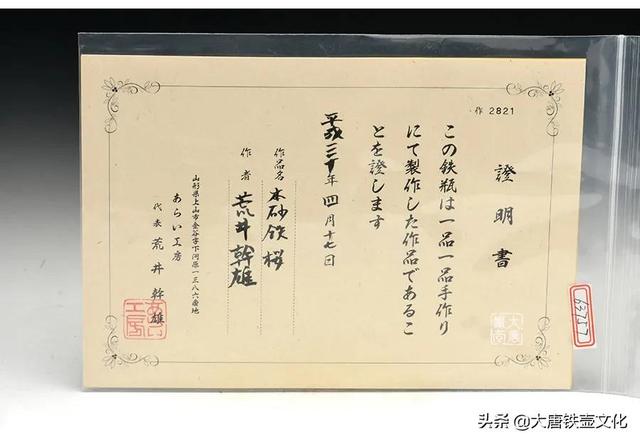 作 2821
證明書
この鉄瓶は一品一品手作り
にて製作した作品であるこ
とを證します
平成三十年四月十七日
作品名 本砂鉄 桜
作者 荒井幹雄
山形県上山市金谷字下河原一三八六番地
あらい工房
代表 荒井幹雄
あらい工房
大唐
63757
头条 @大唐铁壶文化